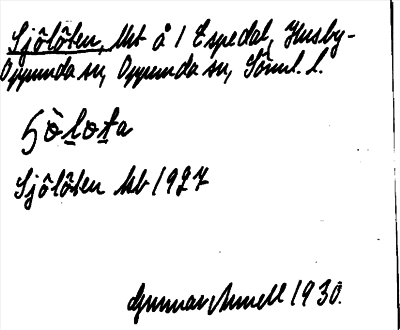 Sjölöten, Ut å 1 Espedal, Husby-
Oppunda sn, Oppunda sn, Söml. L.
Sòlota
Sjölöten Ub 1927
Gunnar Arnell 1930.